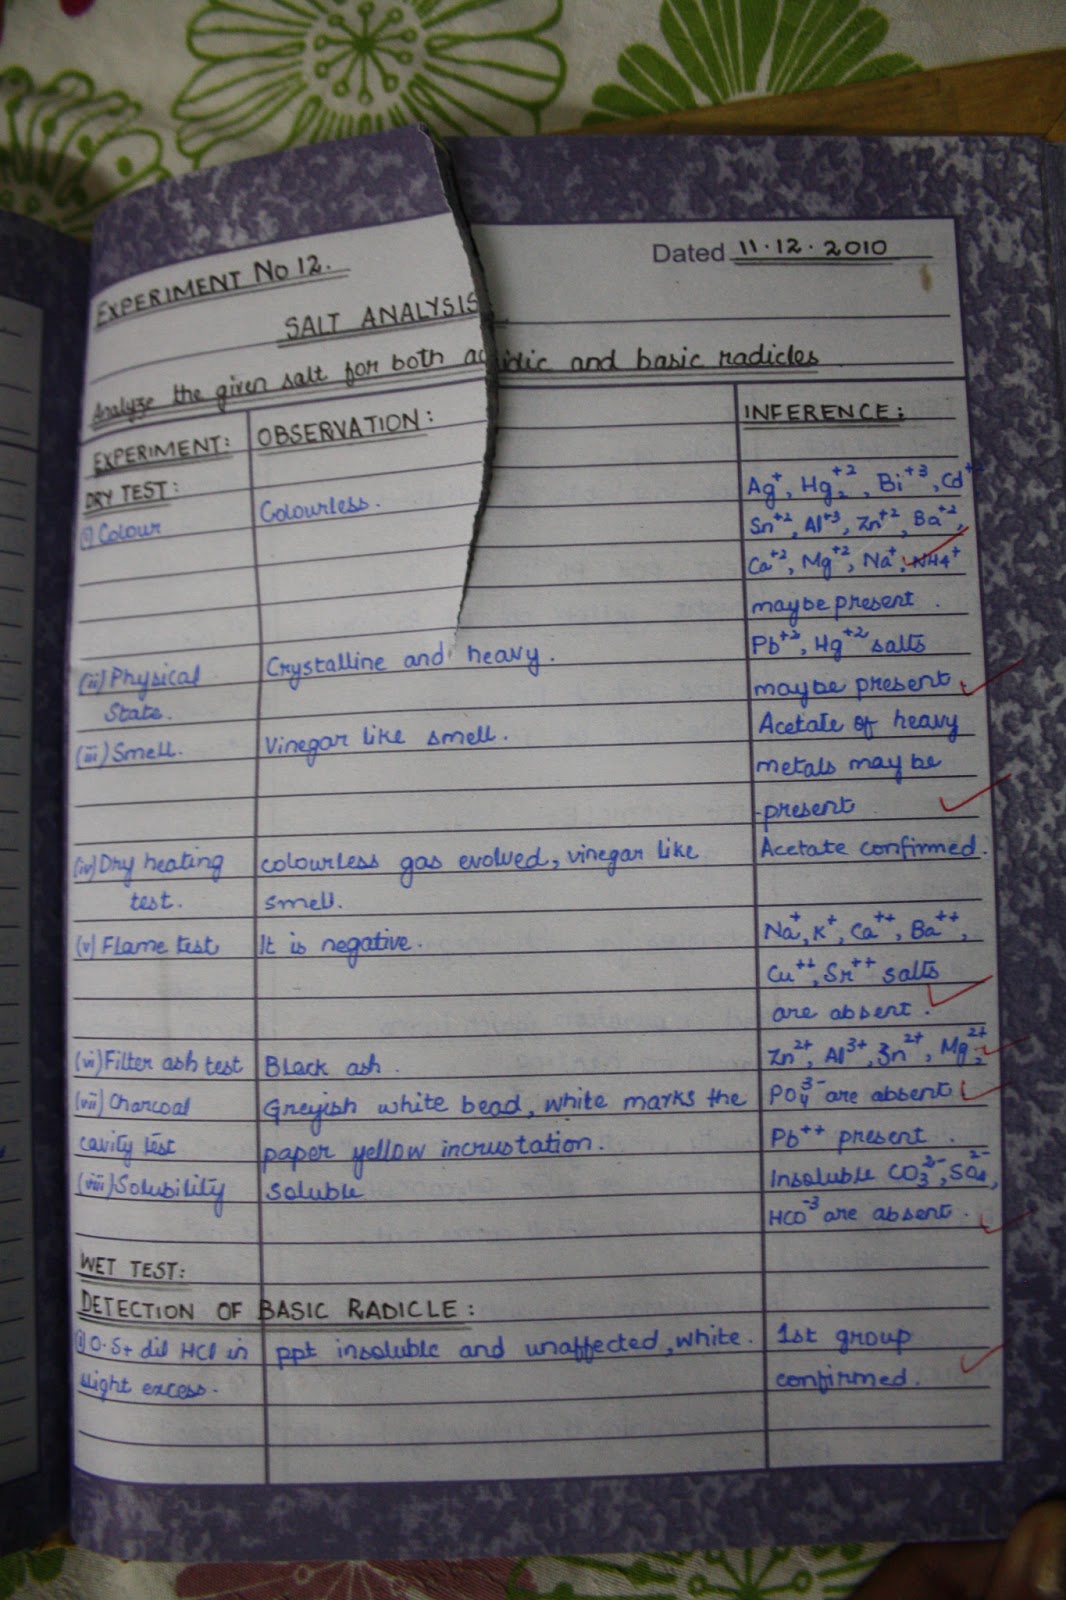 EXPERIMENT No 12.
Dated 11.12.2010
SALT ANALYSIS
Analyze the given salt for both acidic and basic radicles
EXPERIMENT: OBSERVATION: INFERENCE:
DRY TEST: Ag⁺, Hg₂⁺², Bi⁺³, Cd⁺²
(i) Colour Colourless. Sn⁺², Al⁺³, Zn⁺², Ba⁺²,
Ca⁺², Mg⁺², Na⁺, NH4⁺
maybe present.
(ii) Physical Crystalline and heavy. Pb⁺², Hg⁺² salts
State. maybe present
(iii) Smell. Vinegar like smell. Acetate of heavy
metals may be
present
(iv) Dry heating colourless gas evolved, vinegar like Acetate confirmed.
test. smell.
(v) Flame test It is negative. Na⁺, K⁺, Ca⁺⁺, Ba⁺⁺,
Cu⁺⁺, Sr⁺⁺ salts
are absent.
(vi) Filter ash test Black ash. Zn²⁺, Al³⁺, Zn²⁺, Mg²⁺,
(vii) Charcoal Greyish white bead, white marks the PO₄³⁻ are absent
cavity test paper yellow incrustation. Pb⁺⁺ present.
(viii) Solubility Soluble Insoluble CO₃²⁻, SO₄²⁻,
HCO⁻³ are absent.
WET TEST:
DETECTION OF BASIC RADICLE:
(i) O.S+ dil HCl in ppt insoluble and unaffected, white. 1st group
slight excess. confirmed.